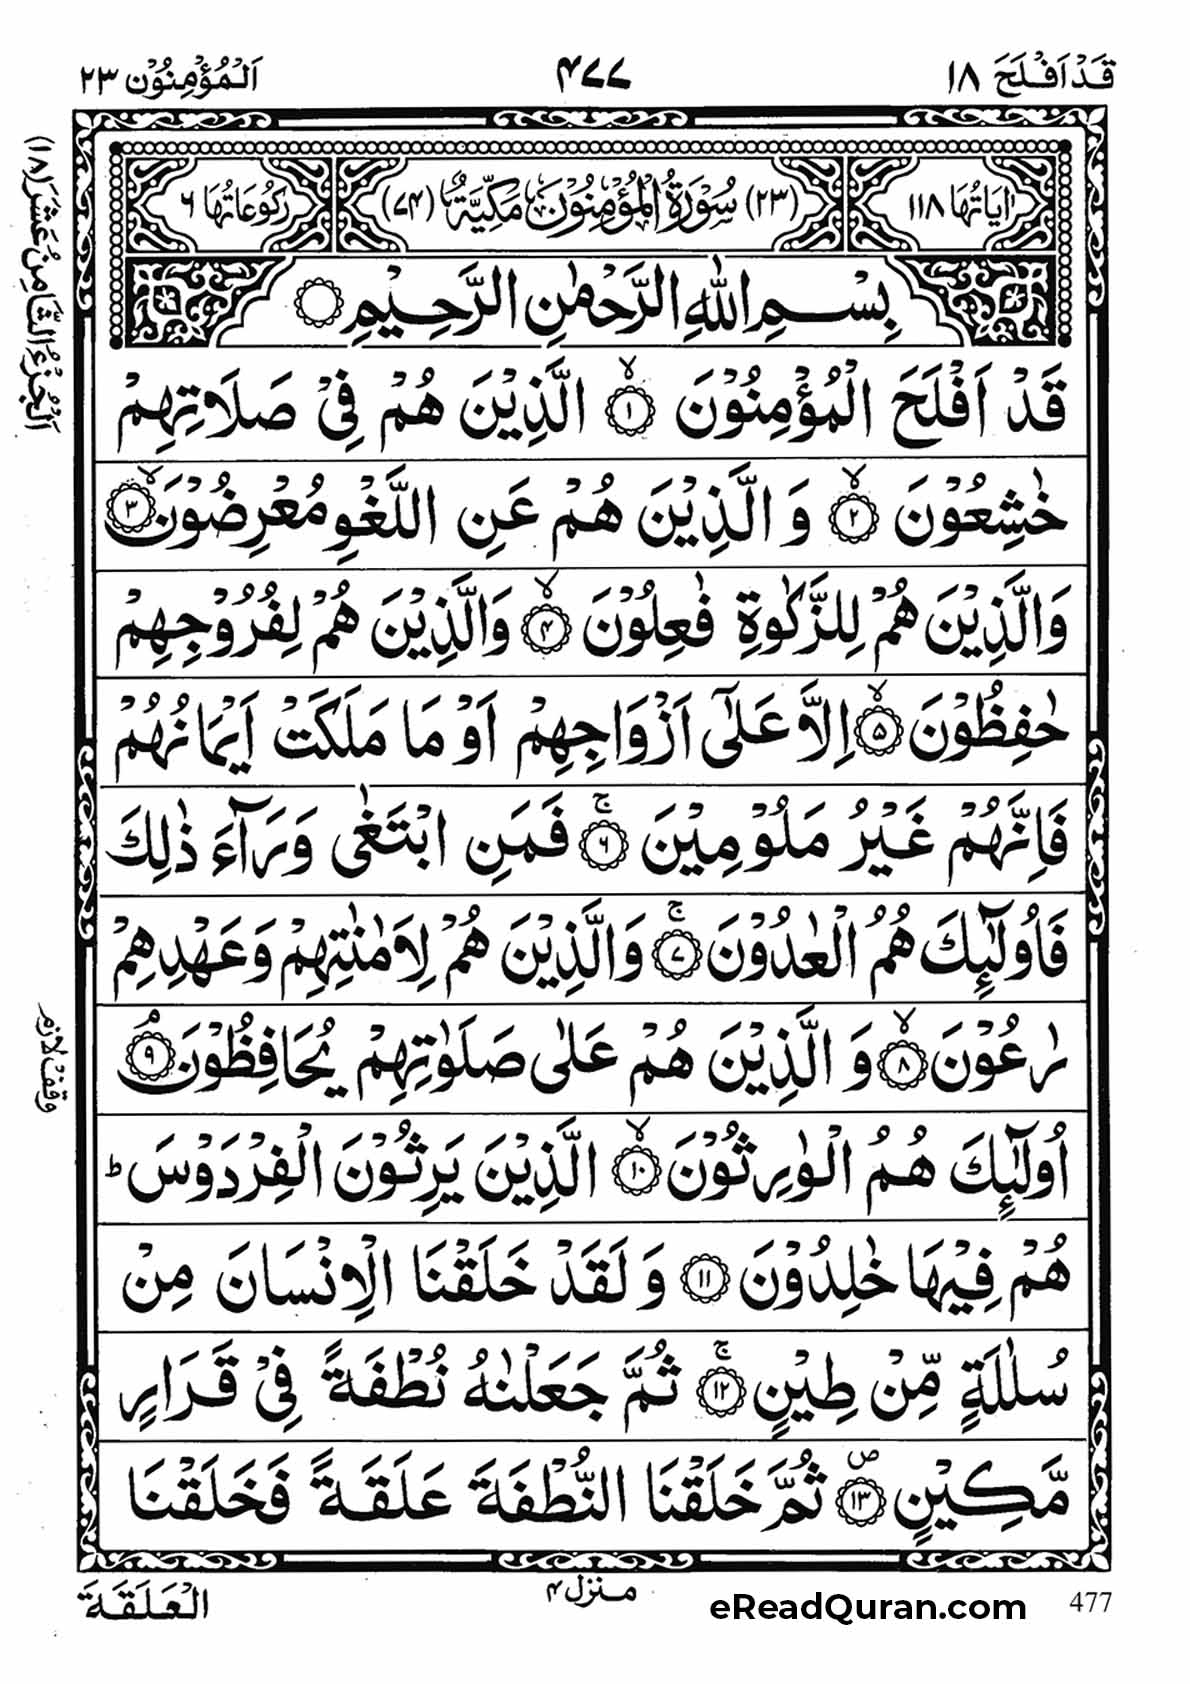 قَدْ اَفْلَحَ ١٨
٤٧٧
اَلْمُؤْمِنُوْن ٢٣
اٰيَاتُهَا ١١٨
(٢٣) سُوْرَةُ الْمُؤْمِنُوْنَ مَكِّيَّةٌ (٧٤)
رُكُوْعَاتُهَا ٦
اَلْجُزْءُ الثَّامِنُ عَشَرَ (١٨)
بِسْمِ اللّٰهِ الرَّحْمٰنِ الرَّحِيْمِ
قَدْ اَفْلَحَ الْمُؤْمِنُوْنَ ۙ‏﴿١﴾ الَّذِيْنَ هُمْ فِيْ صَلَاتِهِمْ
خٰشِعُوْنَ ۙ‏﴿٢﴾ وَالَّذِيْنَ هُمْ عَنِ اللَّغْوِ مُعْرِضُوْنَ ۙ‏﴿٣﴾
وَالَّذِيْنَ هُمْ لِلزَّكٰوةِ فٰعِلُوْنَ ۙ‏﴿٤﴾ وَالَّذِيْنَ هُمْ لِفُرُوْجِهِمْ
حٰفِظُوْنَ ۙ‏﴿٥﴾ اِلَّا عَلٰٓى اَزْوَاجِهِمْ اَوْ مَا مَلَكَتْ اَيْمَانُهُمْ
فَاِنَّهُمْ غَيْرُ مَلُوْمِيْنَ ۚ‏﴿٦﴾ فَمَنِ ابْتَغٰى وَرَآءَ ذٰلِكَ
فَاُولٰٓئِكَ هُمُ الْعٰدُوْنَ ۚ‏﴿٧﴾ وَالَّذِيْنَ هُمْ لِاَمٰنٰتِهِمْ وَعَهْدِهِمْ
رٰعُوْنَ ۙ‏﴿٨﴾ وَالَّذِيْنَ هُمْ عَلٰى صَلَوٰتِهِمْ يُحَافِظُوْنَ ۘ‏﴿٩﴾
وقف لازم
اُولٰٓئِكَ هُمُ الْوٰرِثُوْنَ ۙ‏﴿١٠﴾ الَّذِيْنَ يَرِثُوْنَ الْفِرْدَوْسَ ؕ
هُمْ فِيْهَا خٰلِدُوْنَ ﴿١١﴾ وَلَقَدْ خَلَقْنَا الْاِنْسَانَ مِنْ
سُلٰلَةٍ مِّنْ طِيْنٍ ۚ‏﴿١٢﴾ ثُمَّ جَعَلْنٰهُ نُطْفَةً فِيْ قَرَارٍ
مَّكِيْنٍ ۖ‏﴿١٣﴾ ثُمَّ خَلَقْنَا النُّطْفَةَ عَلَقَةً فَخَلَقْنَا
الْعَلَقَةَ
منزل ٤
eReadQuran.com
477